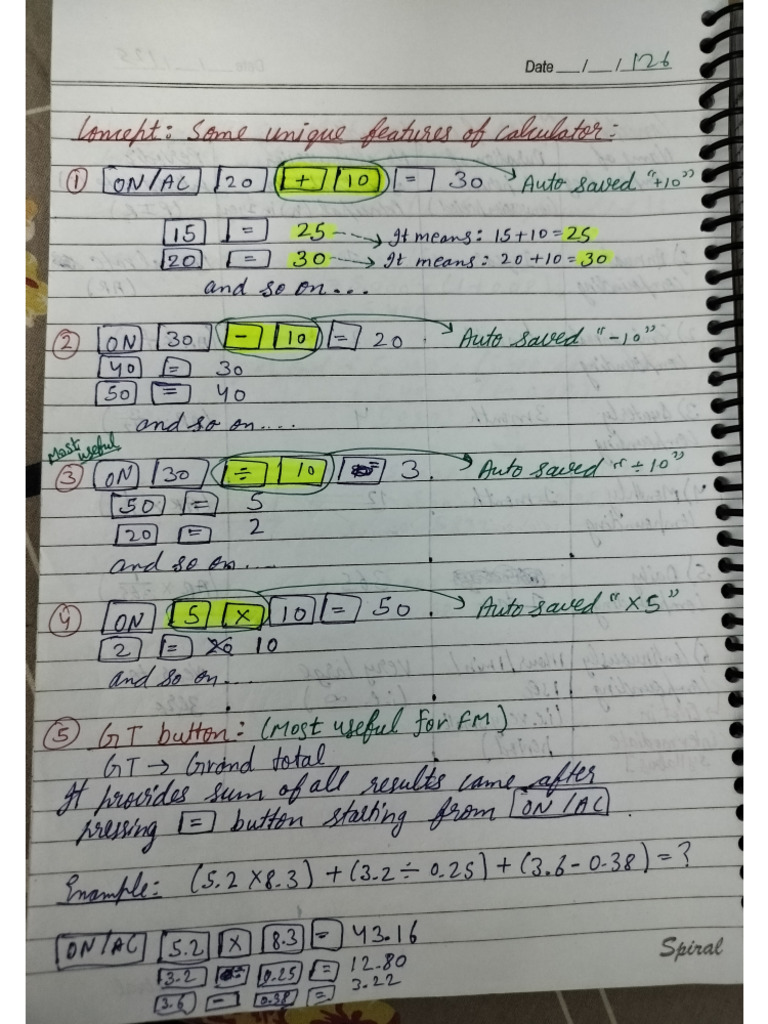 Date __/__/126
Concept: Some unique features of calculator:
① ON/AC 20 + 10 = 30 → Auto saved "+10"
15 = 25 → It means: 15+10=25
20 = 30 → It means: 20+10=30
and so on...
② ON 30 - 10 = 20. → Auto saved "-10"
40 = 30
50 = 40
and so on....
Most useful
③ ON 30 ÷ 10 = 3. → Auto saved "÷10"
50 = 5
20 = 2
and so on...
④ ON 5 × 10 = 50. → Auto saved "×5"
2 = 10
and so on...
⑤ GT button: (Most useful for FM)
GT → Grand total
It provides sum of all results came after
pressing = button starting from ON/AC.
Example: (5.2×8.3)+(3.2÷0.25)+(3.6-0.38)=?
ON/AC 5.2 × 8.3 = 43.16
3.2 ÷ 0.25 = 12.80
3.6 - 0.38 = 3.22
Spiral